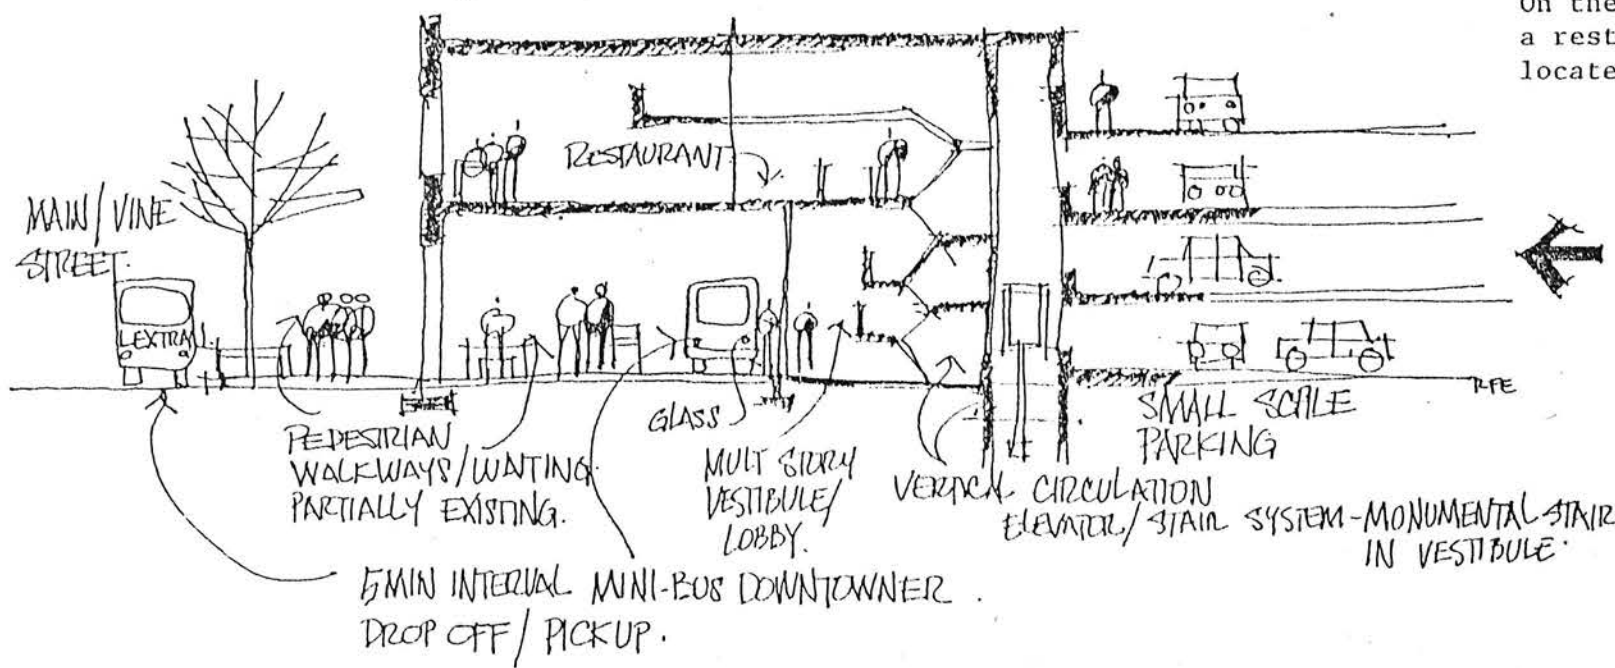 On the
a rest
locate
RESTAURANT
MAIN/VINE
STREET.
LEXTRAN
GLASS
PEDESTRIAN
WALKWAYS/WAITING
PARTIALLY EXISTING.
MULT STORY
VESTIBULE/
LOBBY.
VERTICAL CIRCULATION
ELEVATOR/STAIR SYSTEM-MONUMENTAL STAIR
IN VESTIBULE.
SMALL SCALE
PARKING
5MIN INTERVAL MINI-BUS DOWNTOWNER.
DROP OFF/PICKUP.